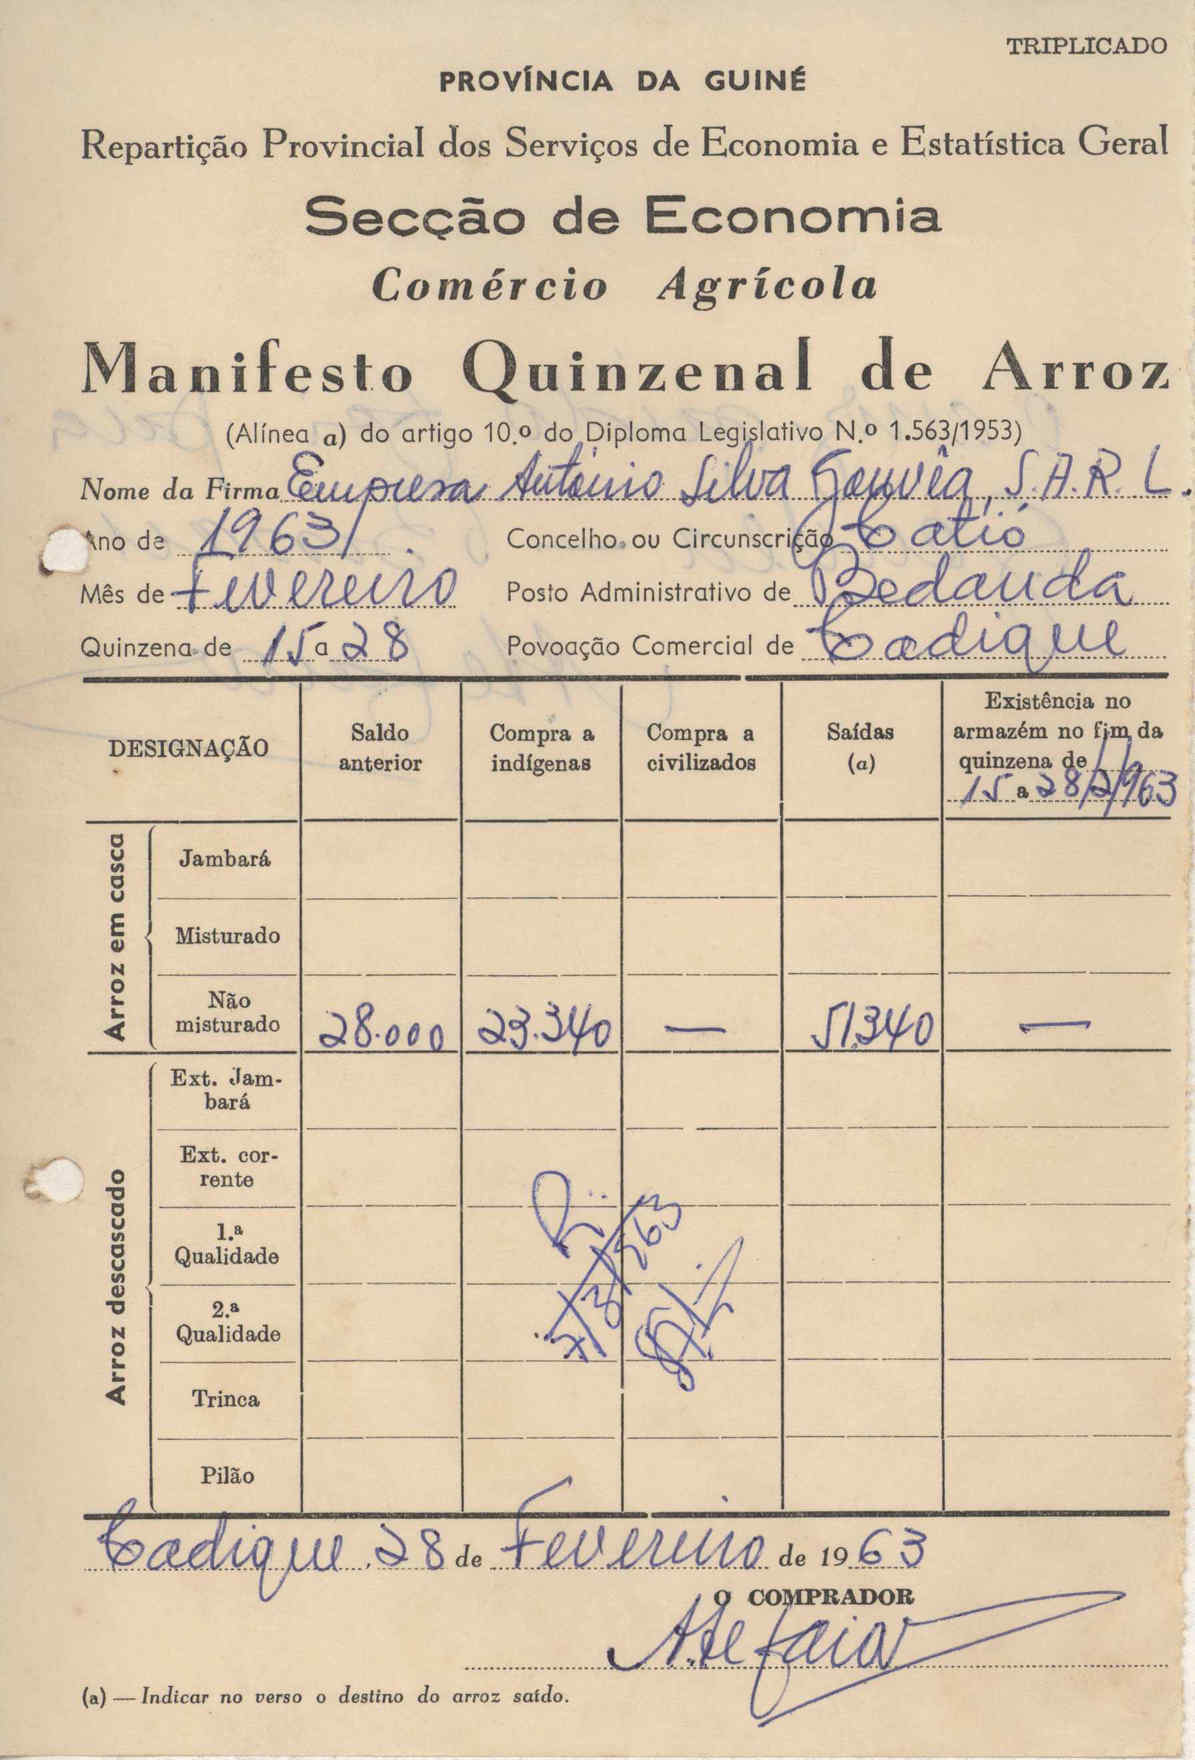 TRIPLICADO
PROVÍNCIA DA GUINÉ
Repartição Provincial dos Serviços de Economia e Estatística Geral
Secção de Economia
Comércio Agrícola
Manifesto Quinzenal de Arroz
(Alínea a) do artigo 10.º do Diploma Legislativo N.º 1.563/1953)
Nome da Firma Empresa António Silva Gouvêa, S.A.R.L.
Ano de 1963 Concelho ou Circunscrição Catió
Mês de Fevereiro Posto Administrativo de Bedanda
Quinzena de 15 a 28 Povoação Comercial de Cadique
DESIGNAÇÃO
Saldo anterior
Compra a indígenas
Compra a civilizados
Saídas (a)
Existência no armazém no fim da quinzena de 15 a 28/2/963
Arroz em casca
Jambará
Misturado
Não misturado 28.000 23.340 — 51.340 —
Arroz descascado
Ext. Jambará
Ext. corrente
1.ª Qualidade
2.ª Qualidade
Trinca
Pilão
7/3/963
Cadique, 28 de Fevereiro de 1963
O COMPRADOR
(a) — Indicar no verso o destino do arroz saído.